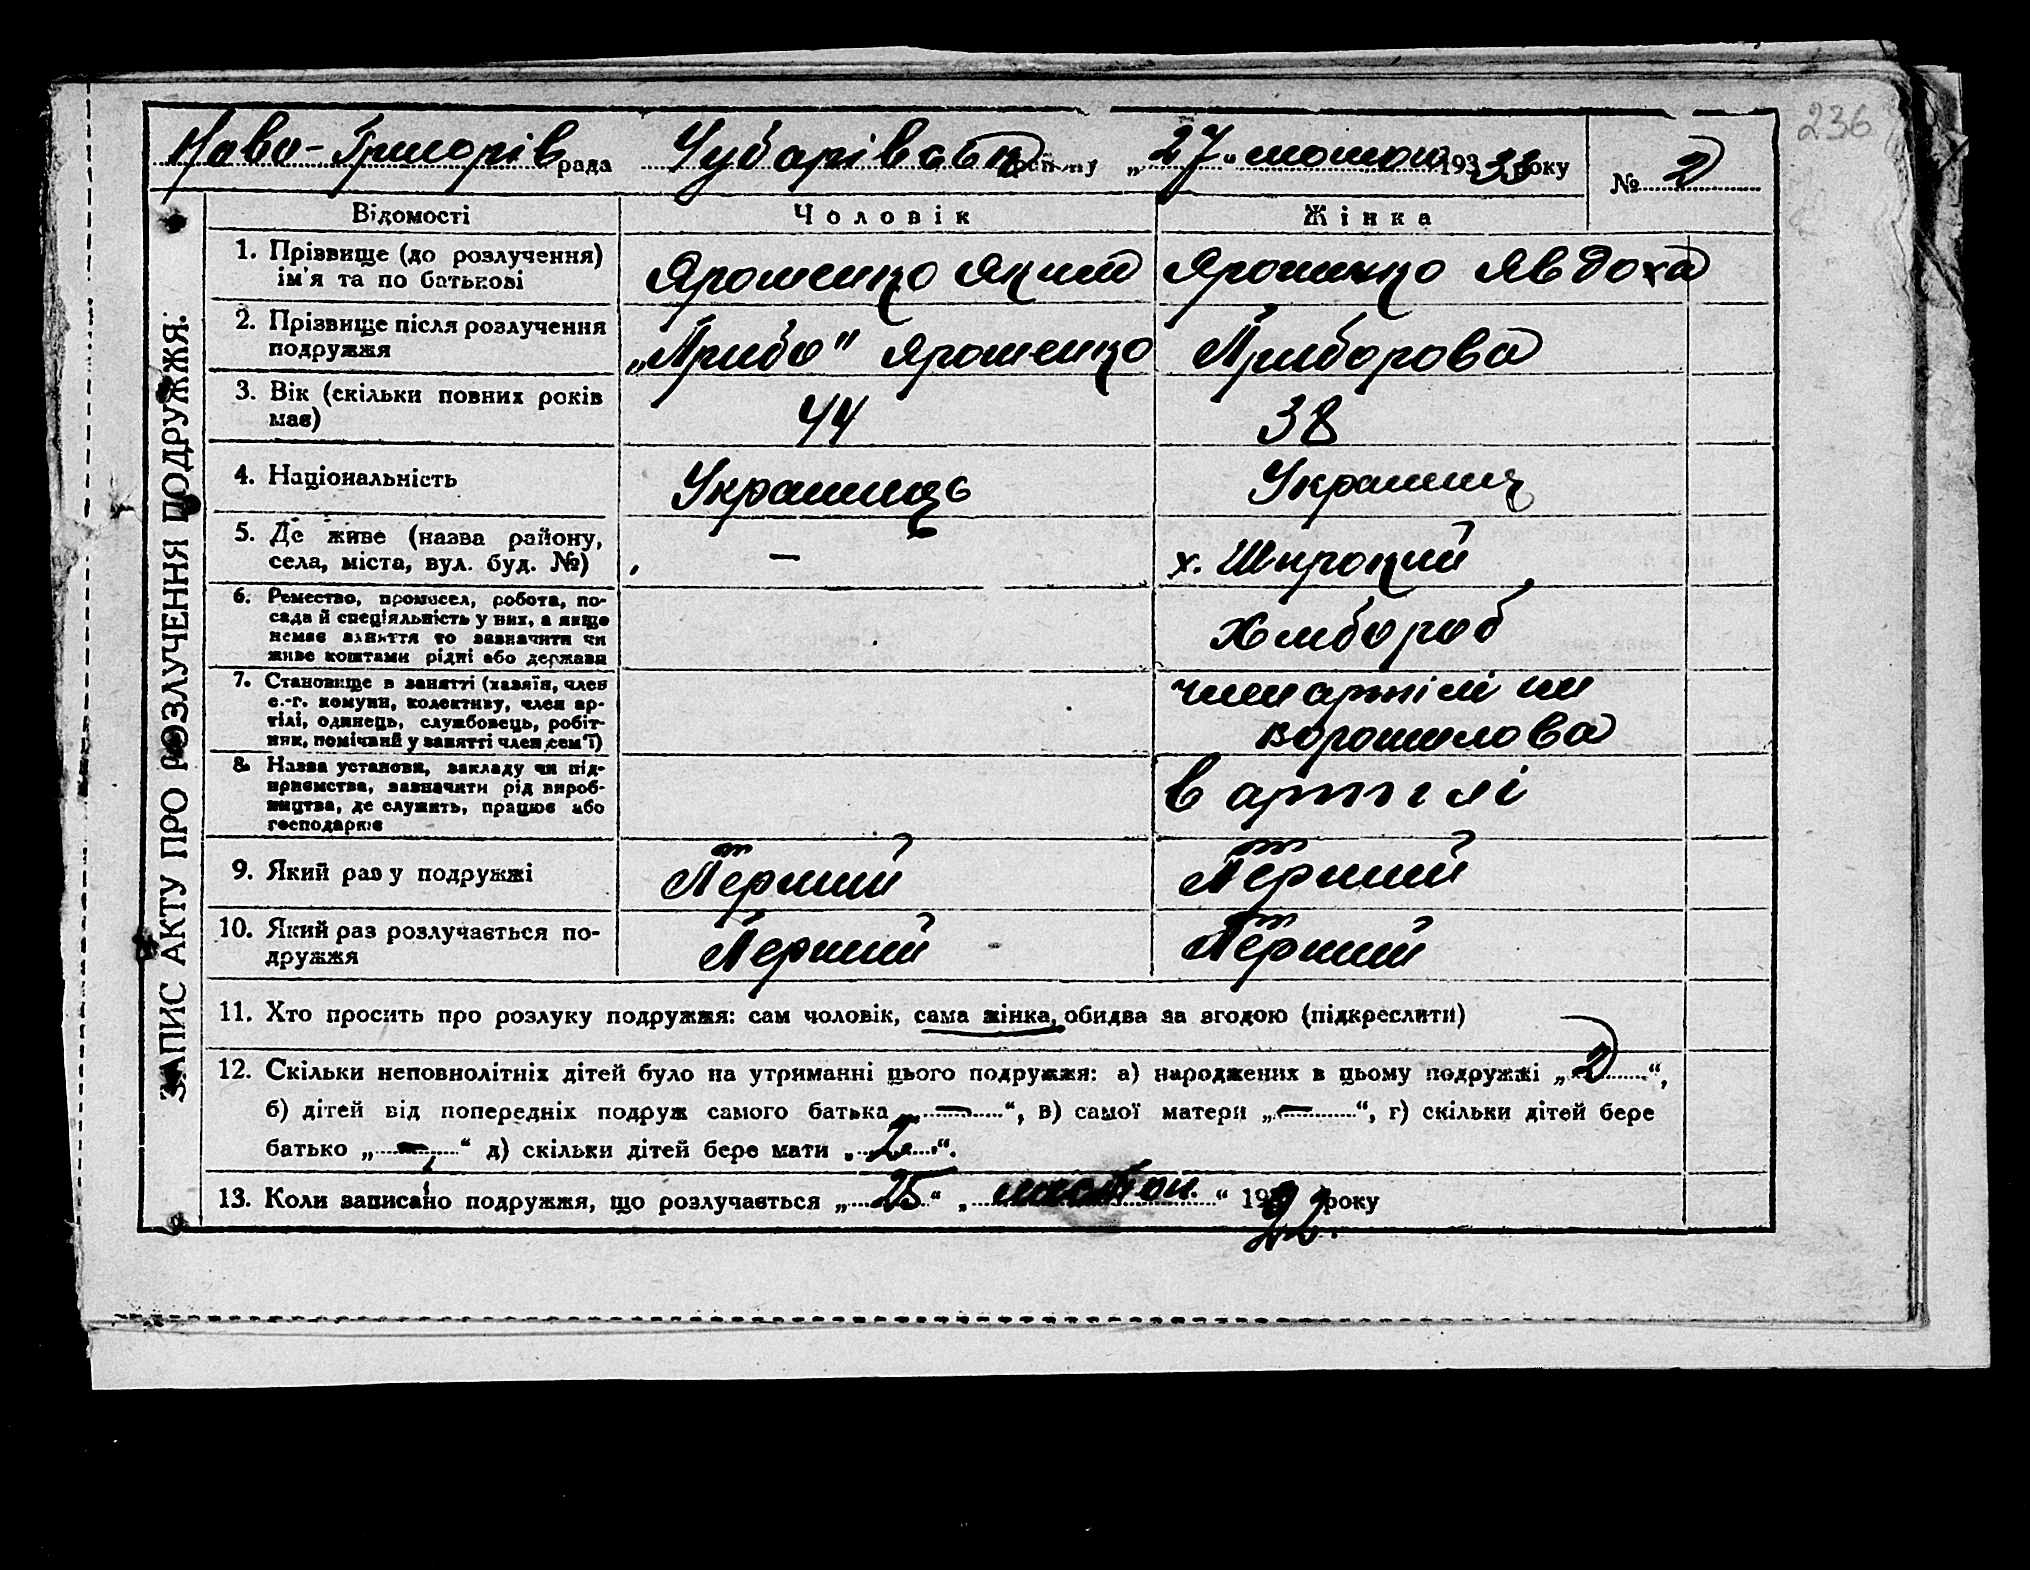 236
Ново-Григорів рада Чубарівськ „27“ лютого 1933 року № 2
ЗАПИС АКТУ ПРО РОЗЛУЧЕННЯ ПОДРУЖЖЯ.
Відомості Чоловік Жінка
1. Прізвище (до розлучення) ім'я та по батькові Ярошенко Яким Ярошенко Явдоха
2. Прізвище після розлучення подружжя Ярошенко
3. Вік (скільки повних років має) 44 38
4. Національність Українець Украинц
5. Де живе (назва району, села, міста, вул. буд. №) — х. Широкий
6. Ремество, промисел, робота, по-
сада й спеціяльність у них, а якщо
немає заняття то зазначити чи
живе коштами рідні або держави Хлибороб
7. Становище в занятті (хазяїн, член
с.-г. комуни, колективу, член ар-
тілі, одинець, службовець, робіт-
ник, помічний у занятті член сем'ї) член артілі им Ворошилова
8. Назва установи, закладу чи під-
приємства, зазначити рід вироб-
ництва, де служить, працює або
господарює в артілі
9. Який раз у подружжі Перший Перший
10. Який раз розлучається по-
дружжя Перший Перший
11. Хто просить про розлуку подружжя: сам чоловік, сама жінка, обидва за згодою (підкреслити)
12. Скільки неповнолітніх дітей було на утриманні цього подружжя: а) народжених в цьому подружжі „2“,
б) дітей від попередніх подруж самого батька „—“, в) самої матери „—“, г) скільки дітей бере
батько „—“ д) скільки дітей бере мати „2“.
13. Коли записано подружжя, що розлучається „25“ „ “ 192 року
22.